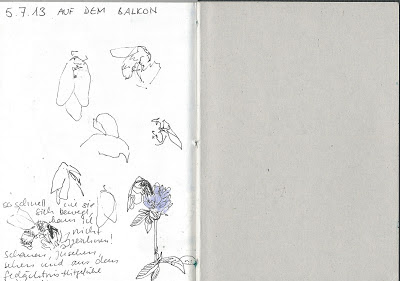 5.7.13 AUF DEM BALKON
so schnell wie sie
sich bewegt,
kann ich
nicht
zeichnen!
schauen, zusehen,
und aus dem